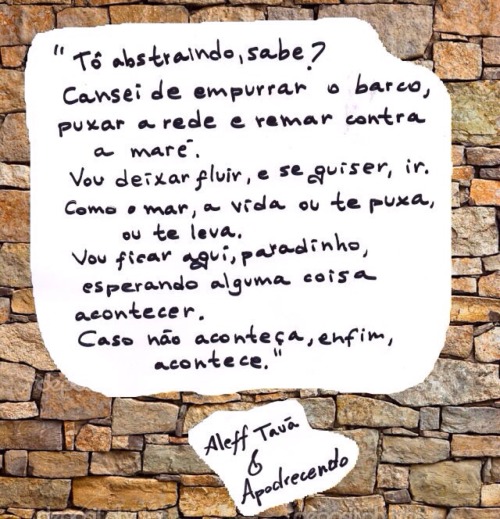 "Tô abstraindo, sabe?
Cansei de empurrar o barco,
puxar a rede e remar contra
a maré.
Vou deixar fluir, e se quiser, ir.
Como o mar, a vida ou te puxa,
ou te leva.
Vou ficar aqui, paradinho,
esperando alguma coisa
acontecer.
Caso não aconteça, enfim,
acontece."
Aleff Tauã
Apodrecendo